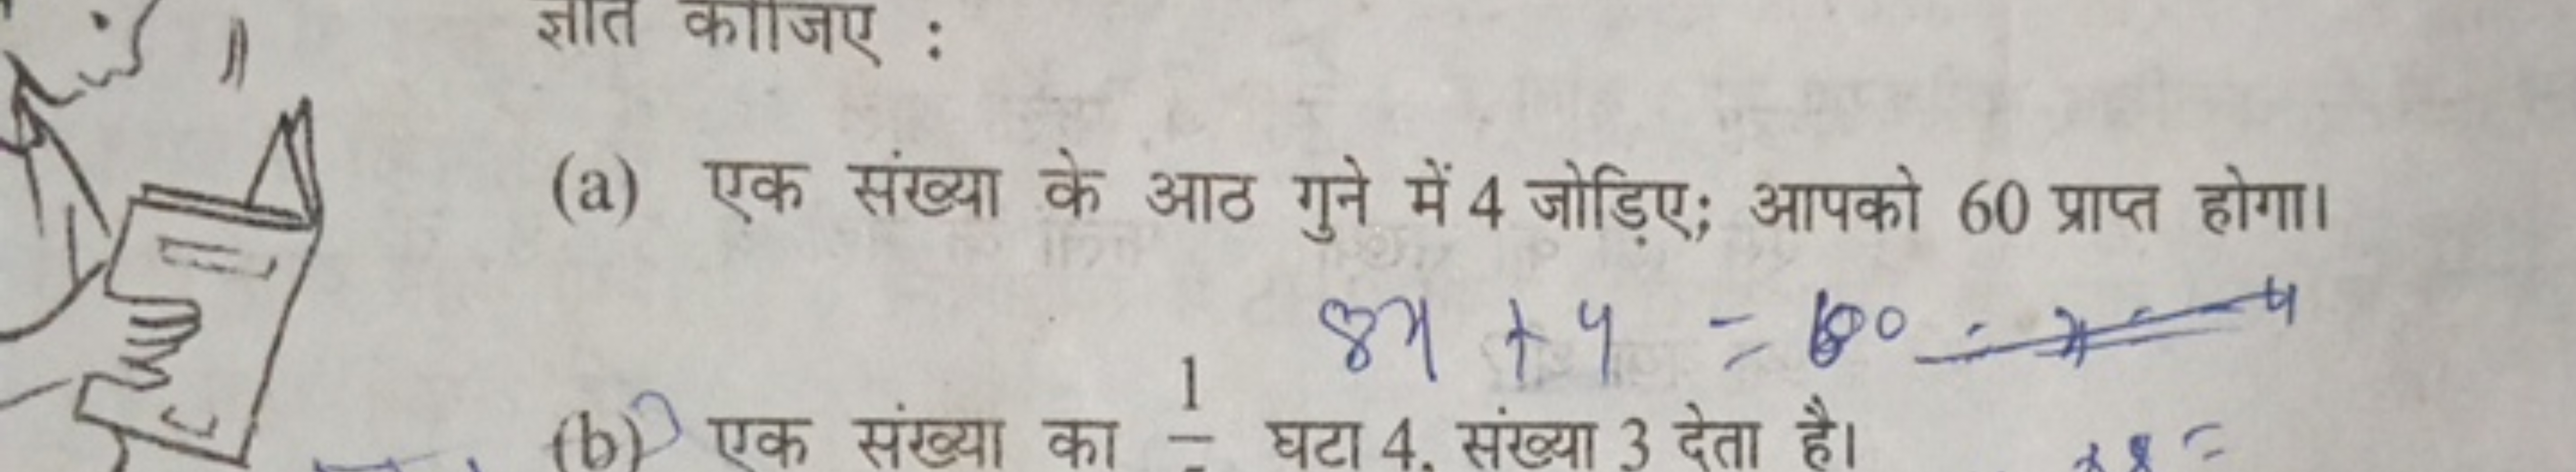 ज्ञात कीजिए :
(a) एक संख्या के आठ गुने में 4 जोड़िए; आपको 60 प्राप्त होगा।
8x + 4 = 60
(b) एक संख्या का 1 घटा 4, संख्या 3 देता है।